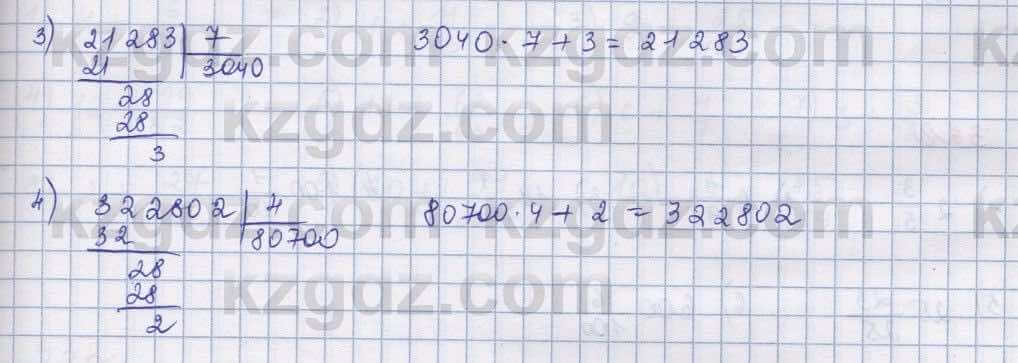 3) 21283 | 7 3040 · 7 + 3 = 21283
21 3040
28
28
3
4) 322802 | 4 80700 · 4 + 2 = 322802
32 80700
28
28
2
kzgdz.com
kzgdz.com
kzgdz.com
kzgdz.com